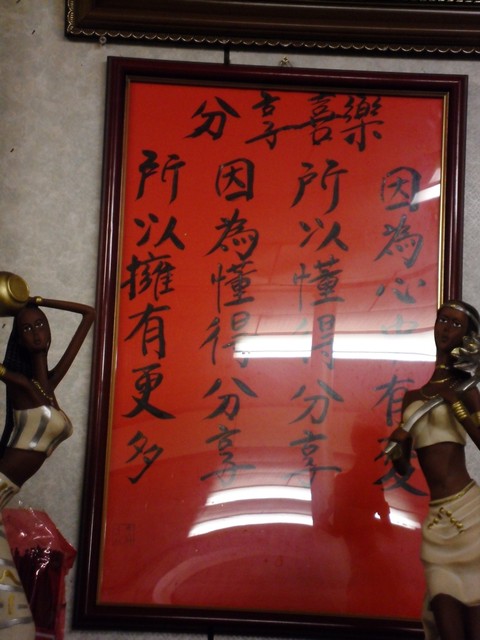 分享喜樂
因為心中有愛
所以懂得分享
因為懂得分享
所以擁有更多